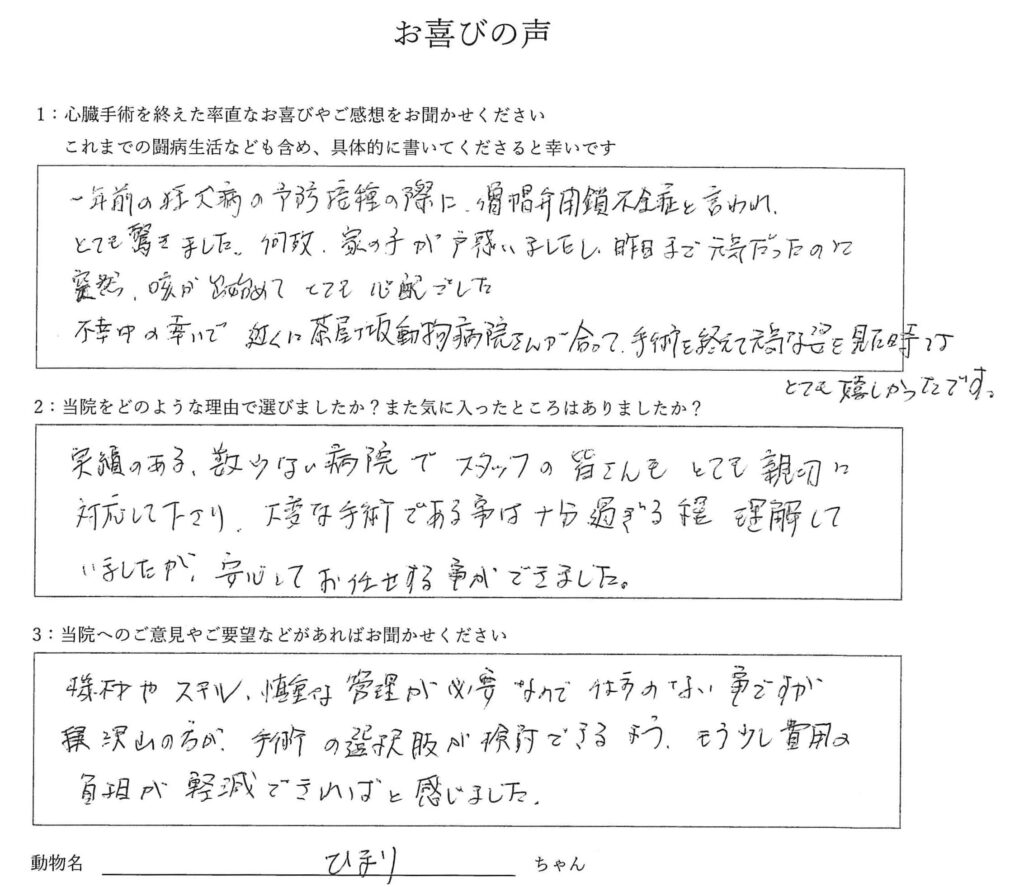 お喜びの声
1：心臓手術を終えた率直なお喜びやご感想をお聞かせください
これまでの闘病生活なども含め、具体的に書いてくださると幸いです
一年前の狂犬病の予防接種の際に、僧帽弁閉鎖不全症と言われ、
とても驚きました。何故、家の子が戸惑いましたし、昨日まで元気だったのに
突然、咳が出始めてとても心配でした
不幸中の幸いで 近くに茶屋ヶ坂動物病院さんが合って、手術を終えて元気な姿を見た時は
とても嬉しかったです。
2：当院をどのような理由で選びましたか？また気に入ったところはありましたか？
実績のある、数少ない病院でスタッフの皆さんもとても親切に
対応して下さり、大変な手術である事は十分過ぎる程 理解して
いましたが、安心してお任せする事ができました。
3：当院へのご意見やご要望などがあればお聞かせください
機材やスキル、慎重な管理が必要なので仕方のない事ですが
沢山の方が、手術の選択肢が検討できるよう、もう少し費用の
負担が軽減できればと感じました。
動物名 ひまり ちゃん